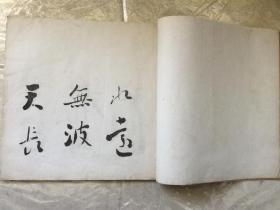 水遠
無波
天長